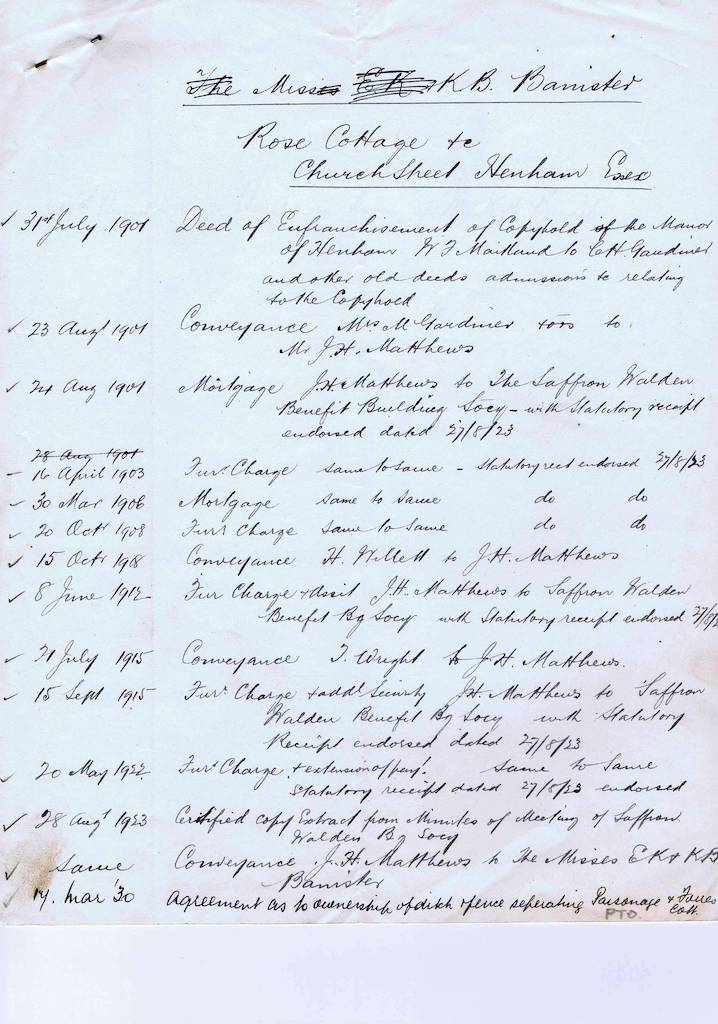 The Misses E.K. & K B. Banister
Rose Cottage &c
Church Street Henham Essex
31st July 1901 Deed of Enfranchisement of Copyhold of the Manor
of Henham W F Maitland to C H Gardiner
and other old deeds admissions &c relating
to the Copyhold
23 Augt 1901 Conveyance Mrs M Gardiner & ors to
Mr J.H. Matthews
24 Aug 1901 Mortgage J.H. Matthews to The Saffron Walden
Benefit Building Socy - with Statutory receipt
endorsed dated 27/8/23
28 Aug 1901
16 April 1903 Furr Charge same to same - Statutory rect endorsed 27/8/23
30 Mar 1906 Mortgage same to same do do
20 Octr 1908 Furr Charge same to same do do
15 Octr Conveyance H. Willett to J.H. Matthews
8 June 1912 Fur Charge J.H. Matthews to Saffron Walden
Benefit Bg Socy with Statutory receipt endorsed
21 July 1915 Conveyance T. Wright to J.H. Matthews.
15 Sept 1915 Furr Charge & addl Security JH Matthews to Saffron
Walden Benefit Bg Socy with Statutory
Receipt endorsed dated 27/8/23
20 May 1922 Furr Charge & extension of payt. Same to Same
Statutory receipt dated 27/8/23 endorsed
28 Augt 1923 Certified copy Extract from Minutes of Meeting of Saffron
Walden Bg Socy
same Conveyance J.H. Matthews to The Misses E K & K B
Banister
14. Mar 30 Agreement as to ownership of ditch & fence seperating Parsonage &
Cott.
PTO.